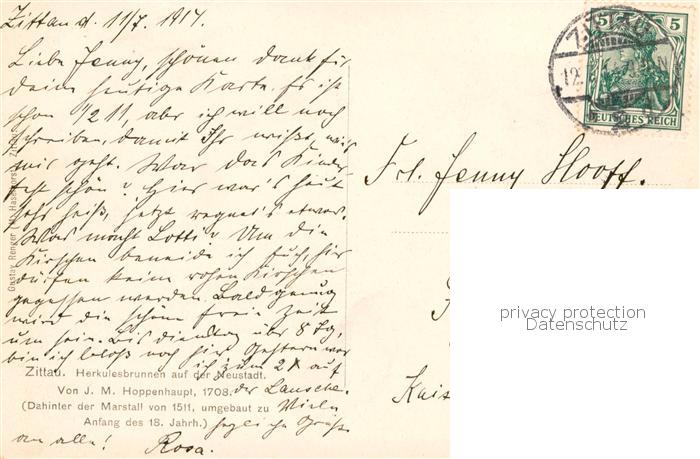 Zittau d. 11/7. 1917.
Liebe Jenny, schönen Dank für
deine heutige Karte. Es ist
schon 1/2 11, aber ich will noch
schreiben, damit Ihr wißt, wie's
mir geht. War das Kinder-
fest schön? Hier war's heut
sehr heiß, jetzt regnet's etwas.
Was macht Lotti? Um die
Kirschen beneide ich Euch, hier
dürfen keine rohen Kirschen
gegessen werden. Bald genug
wird die schöne freie Zeit
um sein. Bis Dienstag über 8 Tg.
bin ich bloß noch hier. Gestern war
ich zum 2 X auf
der Lausche.
Viele
herzliche Grüße
an alle! Rosa.
Zittau. Herkulesbrunnen auf der Neustadt.
Von J. M. Hoppenhaupt, 1708.
(Dahinter der Marstall von 1511, umgebaut zu
Anfang des 18. Jahrh.)
Gustav Renger
Frl. Jenny Hooff.
Kais
5 5
DEUTSCHES REICH
ZITTAU
12.
privacy protection
Datenschutz